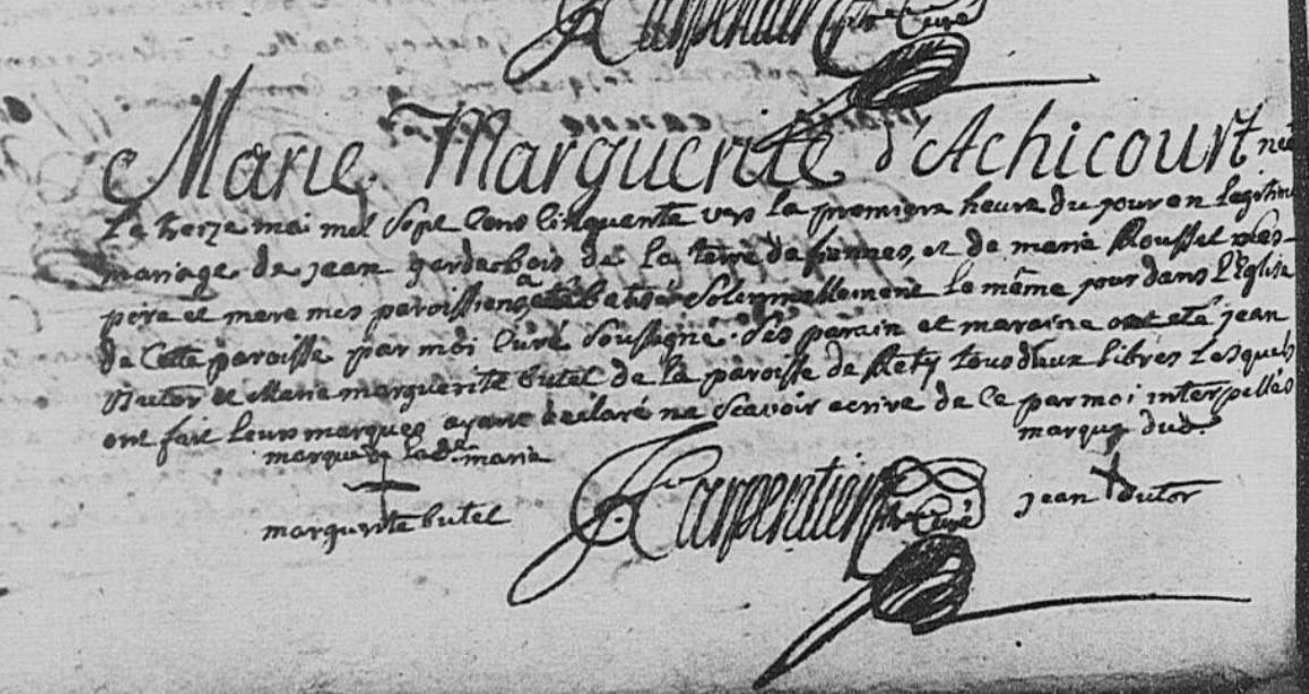 Carpentier ptre Curé
Marie Marguerite d'Achicourt née
Le treize mai mil sept cens cinquante vers la premiere heure du jour en legitime
mariage de jean gardesbois de la terre de fiennes, et de marie Roussel ses
pere et mere mes paroissiens, a batisée solemnellement le même jour dans l'Eglise
de Cette paroisse par moi Curé soussigné. Ses parain et maraine ont eté jean
dutor et Marie marguerite butel de la paroisse de Rety tous deux libres Lesquels
ont fait leurs marques ayant déclaré ne scavoir ecrire de Ce par moi interpellés
marque de lade marie
marque dud.
marguerite butel
J. Carpentier ptre Curé
jean dutor